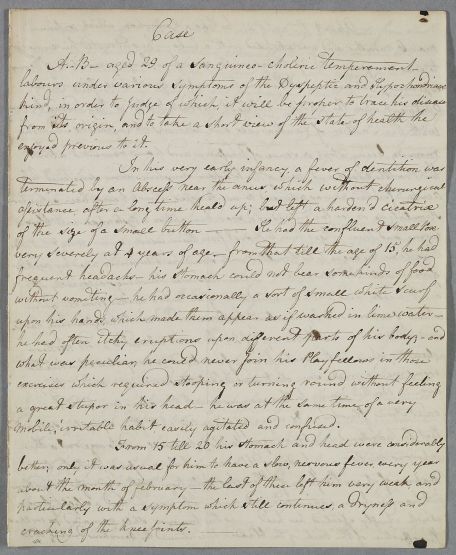 Case
A.-B- aged 29 of a Sanguineo-choleric temperament
labours under various symptoms of the Dyspeptic and Hypochondriac
kind, in order to judge of which, it will be proper to trace his disease
from its origin, and to take a short view of the state of health he
enjoyed previous to it.
In his very early infancy a fever of dentition was
terminated by an Abscess near the anus, which without chirurgical
assistance after a long time heald up; but left a harden'd cicatrice
of the size of a small button — He had the confluent Smallpox
very severely at 4 years of age, from that till the age of 15, he had
frequent headachs - his stomach could not bear some kinds of food
without vomiting - he had occasionally a sort of small white scurf
upon his hands, which made them appear as if washed in lime water -
he had often itchy eruptions upon different parts of his body, - and
what was peculiar, he could never join his Playfellows in those
exercises which required stooping or turning round without feeling
a great stupor in his head - he was at the same time of a very
mobile, irritable habit easily agitated and confused.
From 15 till 20 his stomach and head were considerably
better, only it was usual for him to have a slow, nervous fever every year
about the month of february - the last of these left him very weak and
particularly with a symptom which still continues, a dryness and
cracking of the knee joints.